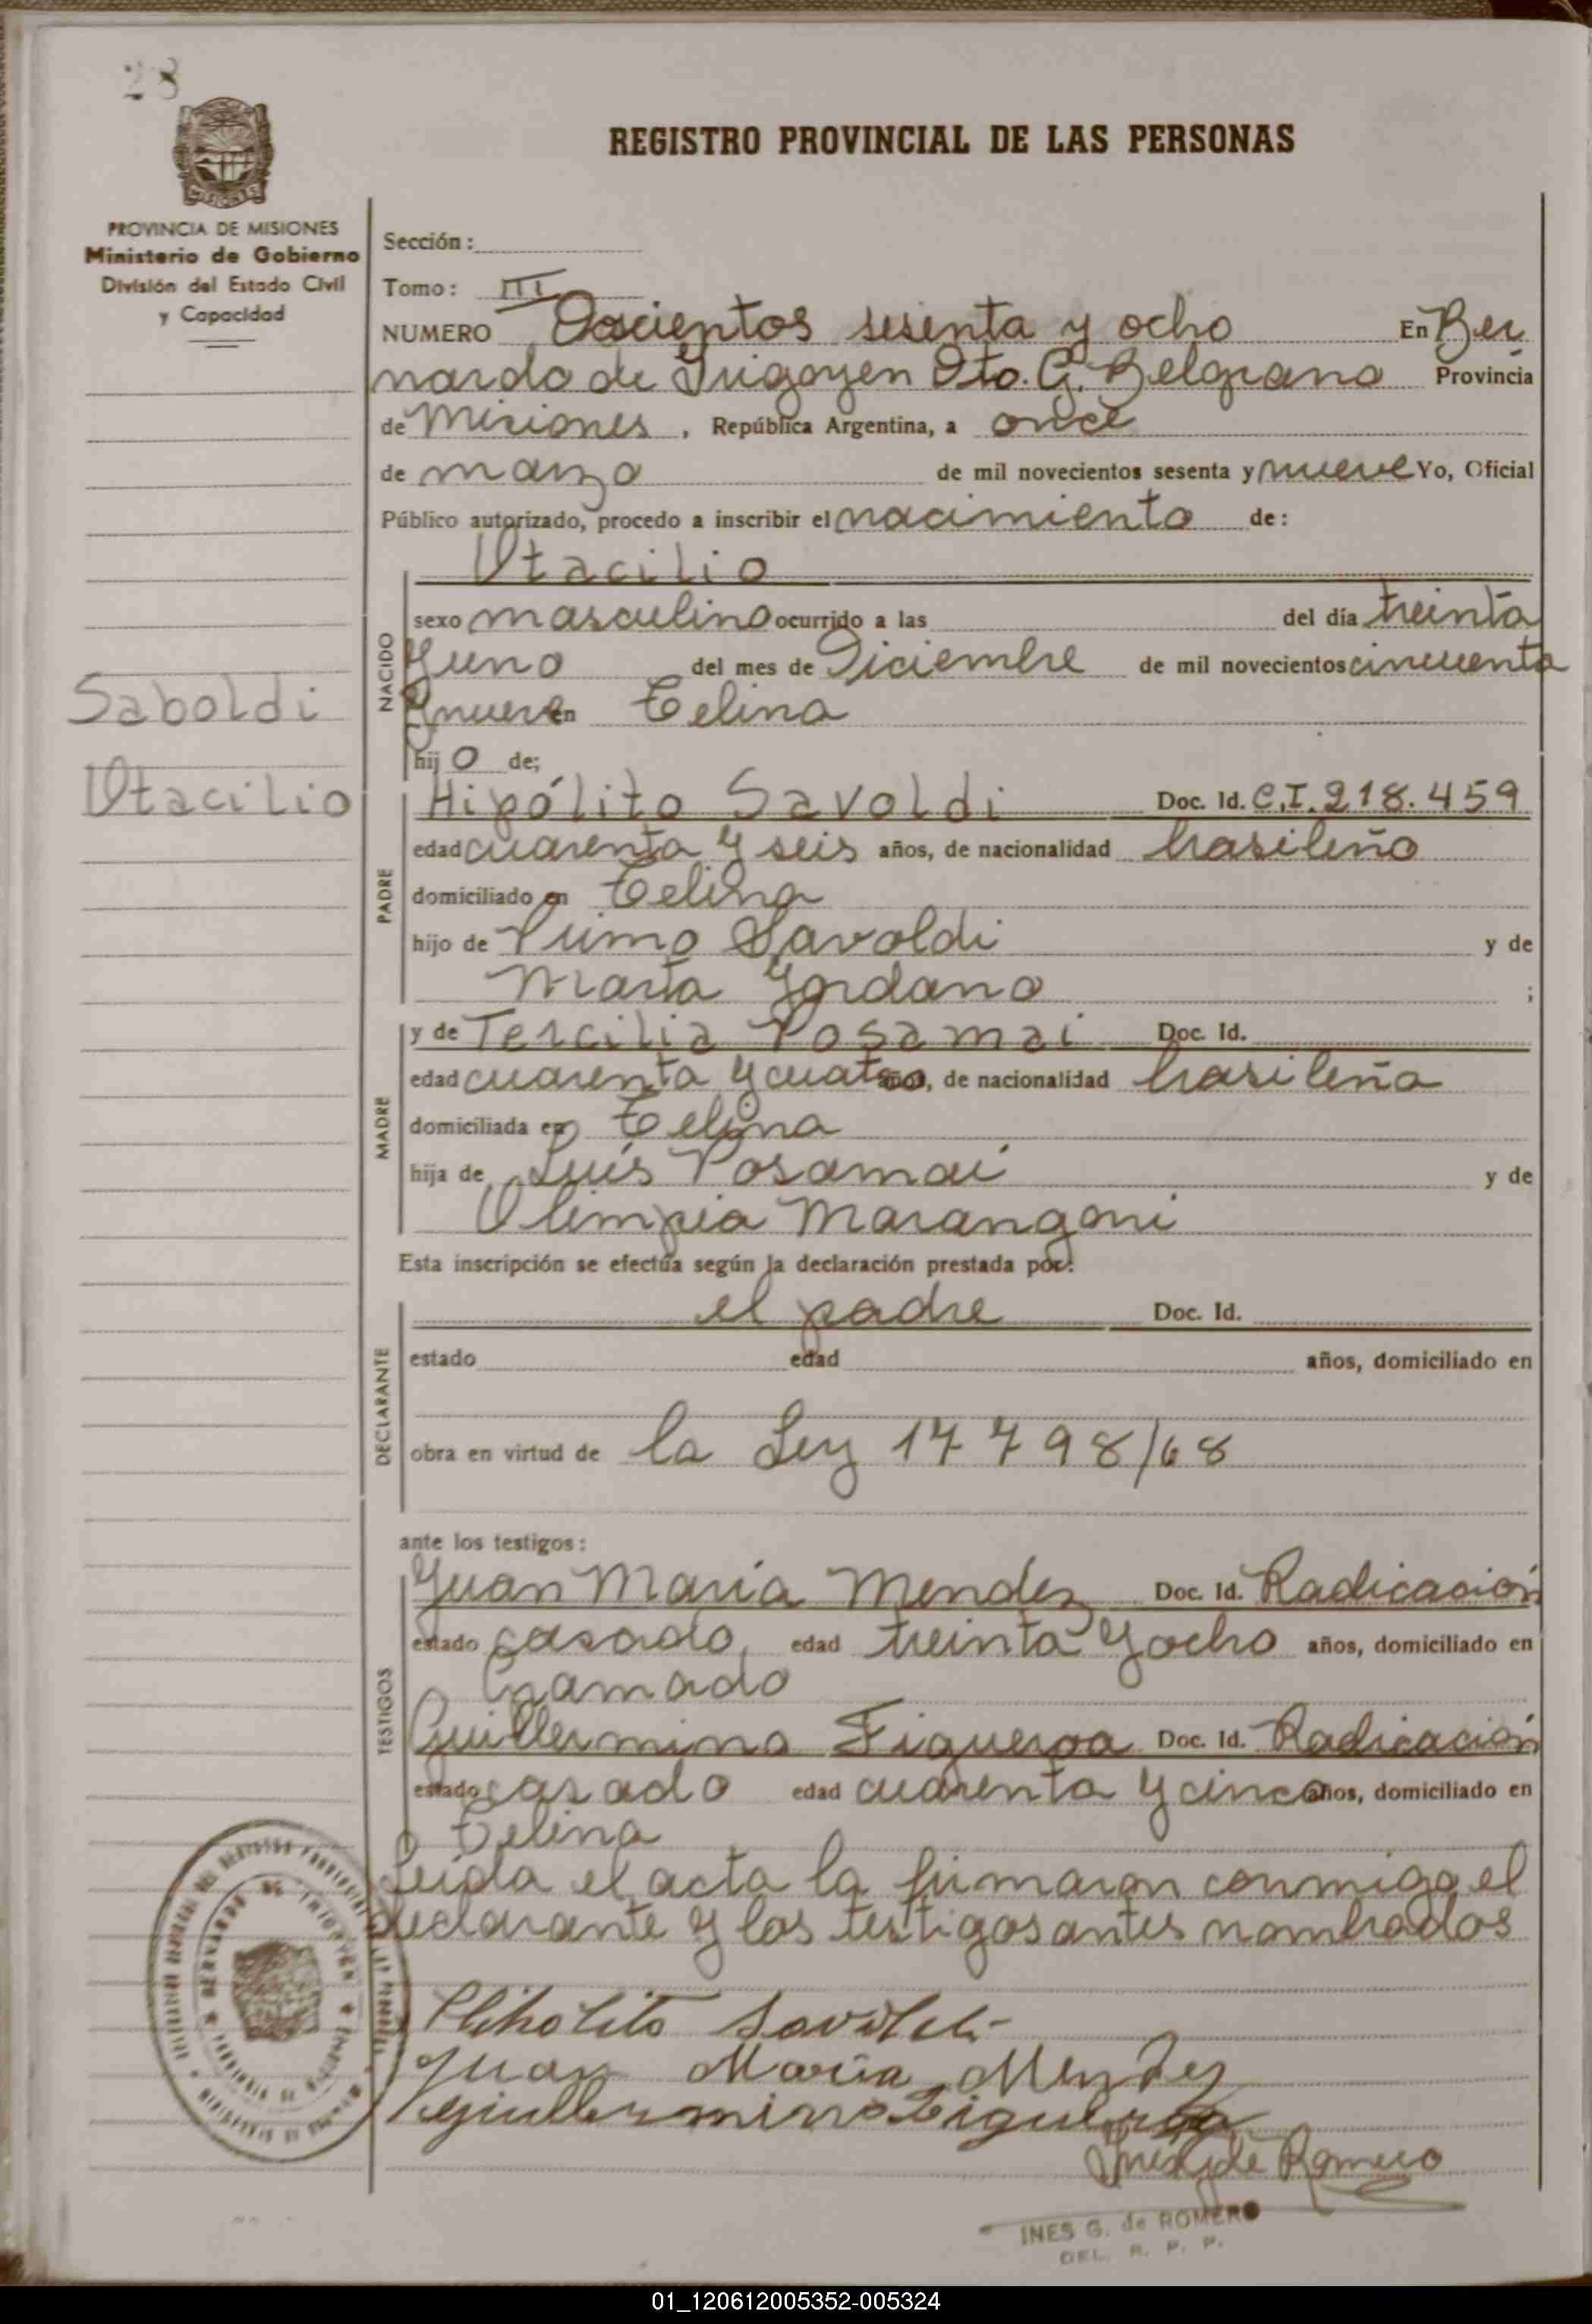 28
REGISTRO PROVINCIAL DE LAS PERSONAS
PROVINCIA DE MISIONES
Ministerio de Gobierno
División del Estado Civil
y Capacidad
Sección:
Tomo: III
NUMERO Doscientos sesenta y ocho En Ber
nardo de Irigoyen Dto. G. Belgrano Provincia
de Misiones, República Argentina, a once
de marzo de mil novecientos sesenta y nueve Yo, Oficial
Público autorizado, procedo a inscribir el nacimiento de:
Otacilio
NACIDO
sexo masculino ocurrido a las del día treinta
y uno del mes de Diciembre de mil novecientos cincuenta
y nueve en Celina
hijo de;
Saboldi
Otacilio
PADRE
Hipólito Savoldi Doc. Id. C.I. 218.459
edad cuarenta y seis años, de nacionalidad brasileño
domiciliado en Celina
hijo de Primo Savoldi y de
María Yordano ;
MADRE
y de Tercilia Posamai Doc. Id.
edad cuarenta y cuatro años, de nacionalidad brasileña
domiciliada en Celina
hija de Luis Posamai y de
Olimpia Marangoni
Esta inscripción se efectúa según la declaración prestada por:
DECLARANTE
el padre Doc. Id.
estado edad años, domiciliado en
obra en virtud de la Ley 17798/68
ante los testigos:
TESTIGOS
Juan María Mendez Doc. Id. Radicación
estado casado, edad treinta y ocho años, domiciliado en
Gramado
Guillermino Figueroa Doc. Id. Radicación
estado casado edad cuarenta y cinco años, domiciliado en
Celina
Leída el acta la firmaron conmigo el
declarante y los testigos antes nombrados
Hiholito Savoldi
Juan María Mendez
Guillermino Figueroa
Ines G. de Romero
INES G. de ROMERO
DEL. R. P. P.
01_120612005352-005324